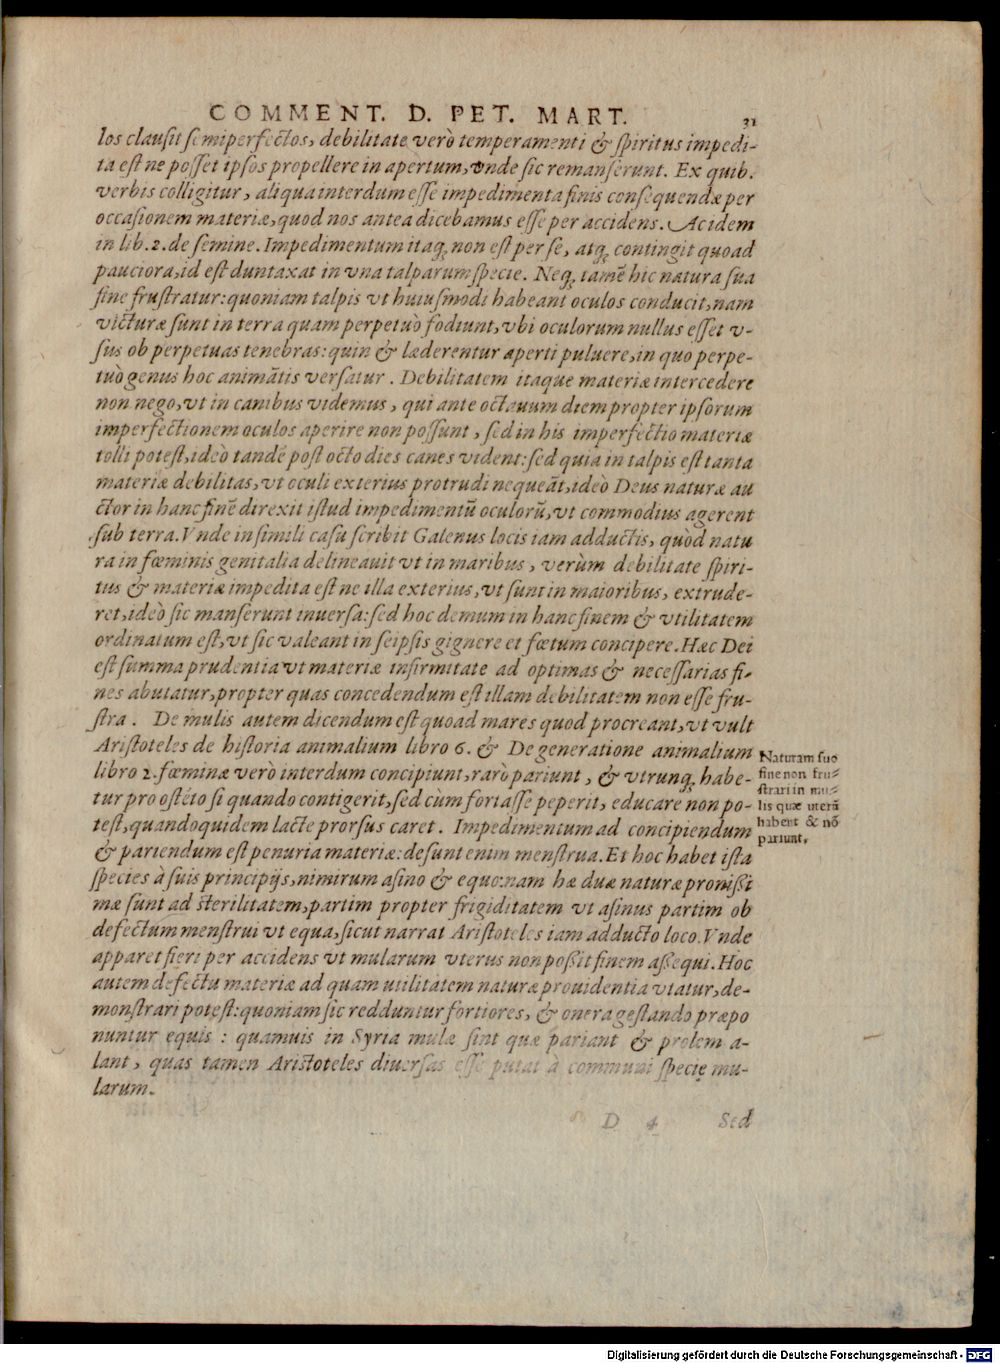 COMMENT. D. PET. MART. 31
los clausit semiperfectos, debilitate verò temperamenti & spiritus impedi-
ta est ne posset ipsos propellere in apertum, vnde sic remanserunt. Ex quib.
verbis colligitur, aliqua interdum esse impedimenta finis consequendæ per
occasionem materiæ, quod nos antea dicebamus esse per accidens. Ac idem
in lib. 2. de semine. Impedimentum itaq; non est per se, atq; contingit quoad
pauciora, id est duntaxat in vna talparum specie. Neq; tamē hic natura sua
fine frustratur: quoniam talpis vt huiusmodi habeant oculos conducit, nam
victuræ sunt in terra quam perpetuò fodiunt, vbi oculorum nullus esset v-
sus ob perpetuas tenebras: quin & læderentur aperti puluere, in quo perpe-
tuò genus hoc animātis versatur. Debilitatem itaque materiæ intercedere
non nego, vt in canibus videmus, qui ante octauum diem propter ipsorum
imperfectionem oculos aperire non possunt, sed in his imperfectio materiæ
tolli potest, ideò tandē post octo dies canes vident: sed quia in talpis est tanta
materiæ debilitas, vt oculi exterius protrudi nequeāt, ideò Deus naturæ au
ctor in hanc finē direxit istud impedimentū oculorū, vt commodius agerent
sub terra. Vnde in simili casu scribit Galenus locis iam adductis, quòd natu
ra in fœminis genitalia delineauit vt in maribus, verùm debilitate spiri-
tus & materiæ impedita est ne illa exterius, vt sunt in maioribus, extrude-
ret, ideò sic manserunt inuersa: sed hoc demum in hanc finem & vtilitatem
ordinatum est, vt sic valeant in seipsis gignere et fœtum concipere. Hæc Dei
est summa prudentia vt materiæ infirmitate ad optimas & necessarias fi-
nes abutatur, propter quas concedendum est illam debilitatem non esse fru-
stra. De mulis autem dicendum est quoad mares quod procreant, vt vult
Aristoteles de historia animalium libro 6. & De generatione animalium
libro 2. fœminæ verò interdum concipiunt, rarò pariunt, & vtrunq; habe-
tur pro ostéto si quando contigerit, sed cùm fortasse peperit, educare non po-
test, quandoquidem lacte prorsus caret. Impedimentum ad concipiendum
& pariendum est penuria materiæ: desunt enim menstrua. Et hoc habet ista
species à suis principijs, nimirum asino & equo: nam hæ duæ naturæ pronißi
mæ sunt ad sterilitatem, partim propter frigiditatem vt asinus partim ob
defectum menstrui vt equa, sicut narrat Aristoteles iam adducto loco. Vnde
apparet fieri per accidens vt mularum vterus non poßit finem aßequi. Hoc
autem defectu materiæ ad quam utilitatem naturæ prouidentia vtatur, de-
monstrari potest: quoniam sic redduntur fortiores, & onera gestando præpo
nuntur equis : quamuis in Syria mulæ sint quæ pariant & prolem a-
lant, quas tamen Aristoteles diuersas esse putat à communi specie mu-
larum.
Naturam suo
fine non fru-
strari in mu-
lis quæ uterū
habent & nō
pariunt,
D 4 Sed
Digitalisierung gefördert durch die Deutsche Forschungsgemeinschaft - DFG